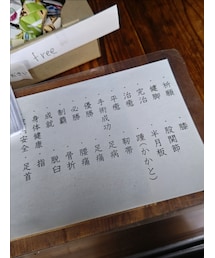 free
祈願・膝
健脚・股関節
完治・半月板
治癒・踵(かかと)
平癒・靭帯
手術成功・足病
優勝・足痛
必勝・腰痛
制覇・骨折
成就・脱臼
身体健康・指
安全・足首